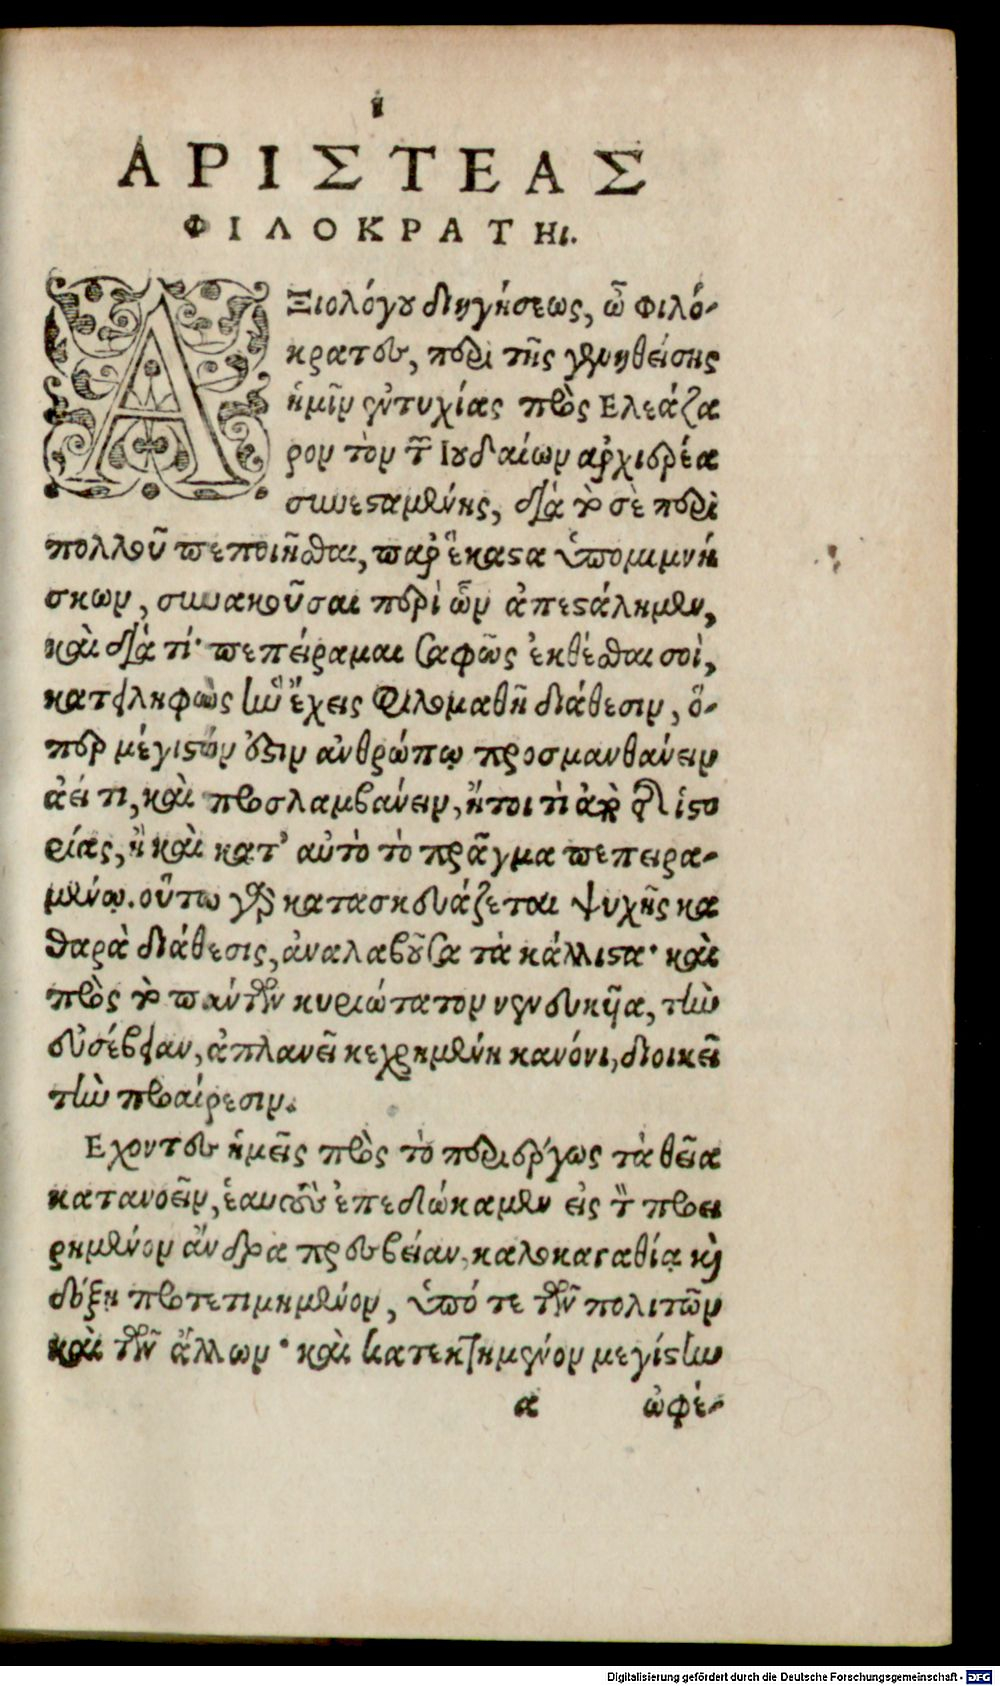 1
ΑΡΙΣΤΕΑΣ
ΦΙΛΟΚΡΑΤΗι.
ΑΞιολόγου διηγήσεως, ὦ Φιλό-
κρατες, περὶ τῆς γενηθείσης
ἡμῖν ἐντυχίας πρὸς Ελεάζα
ρον τὸν τῶν Ιουδαίων ἀρχιερέα
συνεσταμένης, διὰ τὸ σὲ περὶ
πολλοῦ πεποιῆσθαι, παρ᾽ ἕκαστα ὑπομιμνή
σκων, συνακοῦσαι περὶ ὧν ἀπεστάλημεν,
καὶ διὰ τί· πεπείραμαι σαφῶς ἐκθέσθαι σοὶ,
κατειληφὼς ἣν ἔχεις Φιλομαθῆ διάθεσιν, ὅ-
περ μέγιστόν ἐστιν ἀνθρώπῳ προσμανθάνειν
ἀεί τι, καὶ προσλαμβάνειν, ἤτοι τὶ ἀπὸ τῆς ἱστο
ρίας, ἢ καὶ κατ᾽ αὐτὸ τὸ πρᾶγμα πεπειρα-
μένῳ. οὕτω γὰρ κατασκευάζεται ψυχῆς κα
θαρὰ διάθεσις, ἀναλαβοῦσα τὰ κάλλιστα· καὶ
πρὸς τὸ πάντων κυριώτατον νενευκῆα, τὴν
εὐσέβειαν, ἀπλανεῖ κεχρημένη κανόνι, διοικεῖ
τὴν προαίρεσιν.
Εχοντες ἡμεῖς πρὸς τὸ περιέργως τὰ θεῖα
κατανοεῖν, ἑαυτοὺς ἐπεδώκαμεν εἰς τὸν προει
ρημένον ἄνδρα πρεσβείαν, καλοκαγαθίᾳ καὶ
δόξῃ προτετιμημένον, ὑπό τε τῶν πολιτῶν
καὶ τῶν ἄλλων· καὶ κατεκτημένον μεγίστην
α ὠφέ-
Digitalisierung gefördert durch die Deutsche Forschungsgemeinschaft - DFG